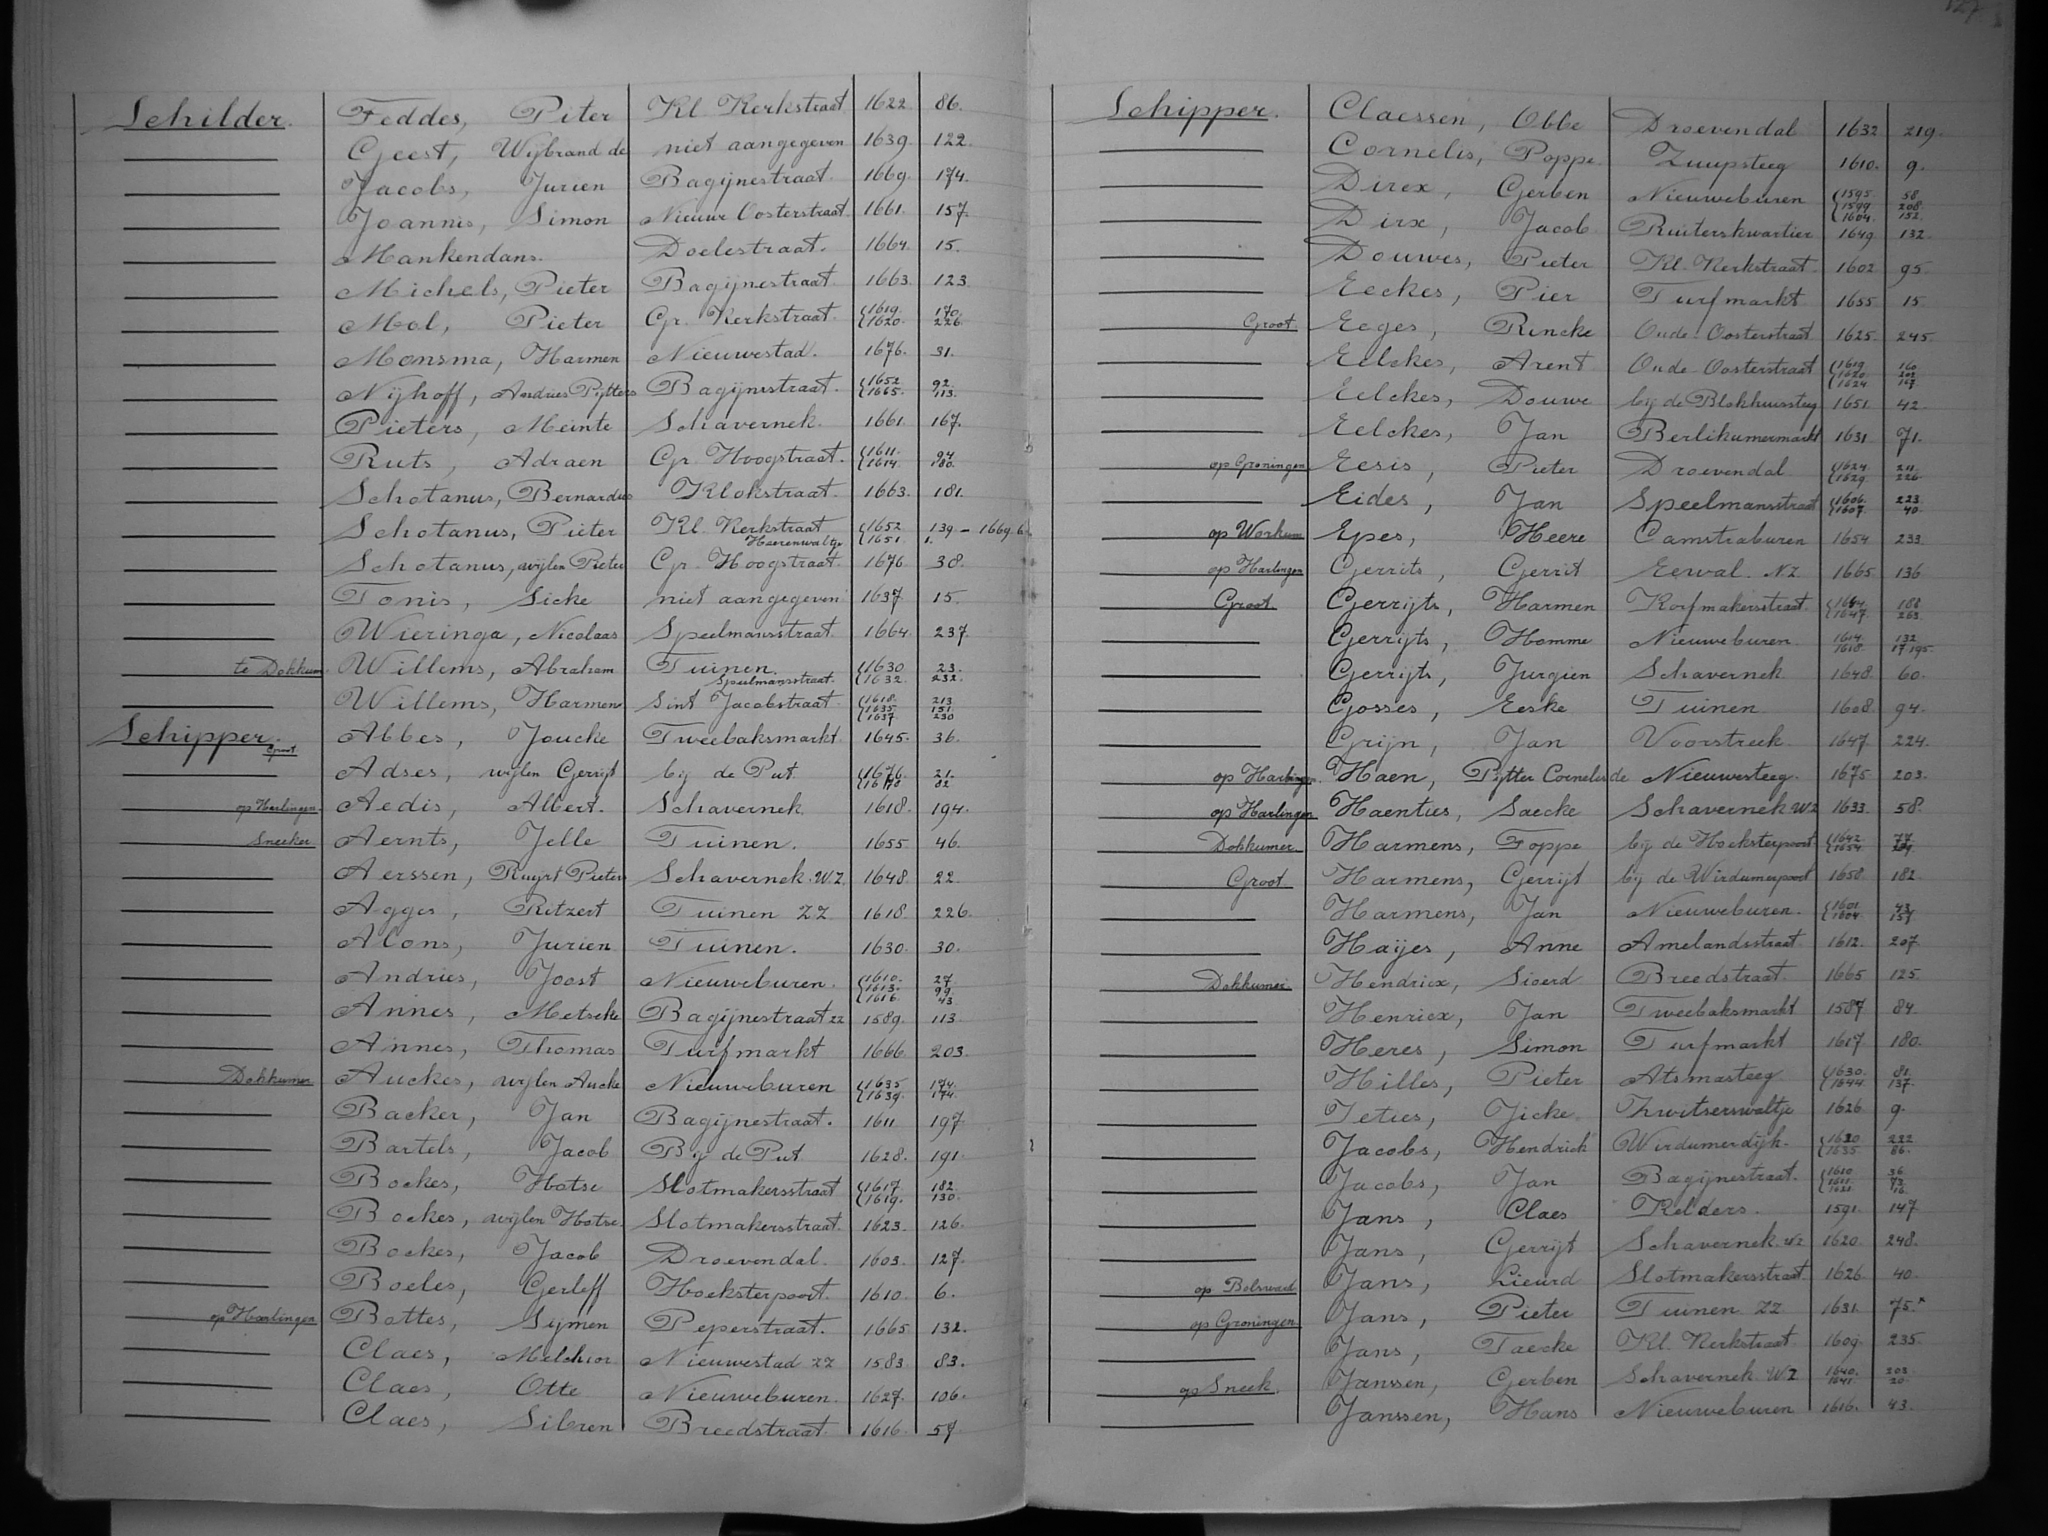 Schilder. Feddes, Piter Kl. Kerkstraat 1622 86.
Geest, Wijbrand de niet aangegeven 1639. 122.
Jacobs, Jurien Bagijnestraat. 1669. 174.
Joannis, Simon Nieuwe Oosterstraat. 1661. 157.
Mankendans. Doelestraat. 1664. 15.
Michels, Pieter Bagijnestraat 1663. 123.
Mol, Pieter Gr. Kerkstraat. 1619. 170. 1620. 226.
Monsma, Harmen Nieuwestad. 1676. 31.
Nijhoff, Andries Pijtters Bagijnestraat. 1652. 92. 1665. 113.
Pieters, Meinte Schavernek. 1661. 167.
Ruts, Adraen Gr. Hoogstraat. 1611. 94. 1614. 180.
Schotanus, Bernardus Klokstraat. 1663. 181.
Schotanus, Pieter Kl. Kerkstraat 1652 139 – 1669. 6. Heerenwaltje 1651. 1.
Schotanus, wijlen Pieter Gr. Hoogstraat. 1676. 38.
Tonis, Sicke niet aangegeven 1637. 15.
Wieringa, Nicolaas Speelmansstraat. 1664. 237.
te Dokkum. Willems, Abraham Tuinen. 1630 23. Speelmansstraat. 1632. 232.
Willems, Harmen Sint Jacobstraat 1618. 213 1635. 151. 1637. 230
Schipper. Groot. Abbes, Joucke Tweebaksmarkt. 1645. 36.
Adses, wijlen Gerrijt bij de Put. 1676. 21. 82
op Harlingen. Aedis, Albert. Schavernek. 1618. 194.
Sneeker Aernts, Jelle Tuinen. 1655 46.
Aerssen, Ruijrt Pieters Schavernek. WZ. 1648. 22.
Agges, Ritzert Tuinen ZZ 1618. 226.
Alons, Jurien. Tuinen. 1630. 30.
Andries, Joost Nieuweburen. 1610. 27. 1613. 99. 1616. 43.
Annes, Metseke Bagijnestraat ZZ 1589. 113.
Annes, Thomas Turfmarkt 1666. 203.
Dokkumer Auckes, wijlen Aucke Nieuweburen 1635 174. 1639. 174.
Backer, Jan Bagijnestraat. 1611. 197
Bartels, Jacob Bij de Put 1628. 191.
Bockes, Hotse Slotmakersstraat 1617. 182. 1619. 130.
Bockes, wijlen Hotse. Slotmakersstraat. 1623. 126.
Bockes, Jacob Droevendal. 1603. 127.
Boeles, Gerleff Hoeksterpoort. 1610. 6.
op Harlingen Bottes, Sijmen Peperstraat. 1665. 132.
Claes, Melchior Nieuwestad ZZ 1583. 83.
Claes, Otte Nieuweburen. 1627. 106.
Claes, Sibren Breedstraat. 1616. 57.
127
Schipper. Claessen, Obbe Droevendal 1632 219.
Cornelis, Poppe. Zuupsteeg 1610. 9.
Direx, Gerben Nieuweburen 1595. 58. 1599. 208. 1604. 152.
Dirx, Jacob Ruiterskwartier 1649 132.
Douwes, Pieter Kl. Kerkstraat. 1602 95.
Eeckes, Pier Turfmarkt 1655 15.
Groot. Eeges, Rincke Oude Oosterstraat 1625. 245.
Eelckes, Arent Oude Oosterstraat 1619. 160 1620. 202 1624. 167.
Eelckes, Douwe bij de Blokhuissteeg 1651. 42.
Eelckes, Jan Berlikumermarkt 1631 71.
op Groningen Eesis, Pieter Droevendal 1624. 211. 1629. 226.
Eides, Jan Speelmansstraat 1606. 223. 1607. 40.
op Workum Epes, Heere Camstraburen 1654 233.
op Harlingen Gerrits, Gerrit Eewal. NZ. 1665 136
Groot. Gerrijts, Harmen Korfmakersstraat. 188 1647. 263.
Gerrijts, Homme Nieuweburen. 1614. 132 1618. 17 195.
Gerrijts, Jurgien Schavernek 1648. 60.
Gosses, Eeske Tuinen 1608. 94.
Grijn, Jan Voorstreek. 1647. 224.
op Harlingen. Haen, Pijtter Cornelis de Nieuwesteeg. 1675. 203.
op Harlingen Haenties, Saecke Schavernek WZ 1633. 58.
Dokkumer Harmens, Foppe bij de Hoeksterpoort 1642. 77. 1654.
Groot Harmens, Gerrijt bij de Wirdumerpoort 1658. 182.
Harmens, Jan Nieuweburen. 1601. 43. 1604. 157.
Haijes, Anne Amelandsstraat. 1612. 207.
Dokkumer. Hendricx, Sioerd Breedstraat. 1665 125.
Henricx, Jan Tweebaksmarkt 1587 84.
Heres, Simon Turfmarkt 1617 180.
Hilles, Pieter Atsmasteeg 1630. 81. 1644. 137.
Ieties, Jicke Zwitserswaltje 1626. 9.
Jacobs, Hendrick Wirdumerdijk. 1620 222 1635. 86.
Jacobs, Jan Bagijnestraat. 1610 36. 1611. 73. 16.
Jans, Claes Kelders. 1591. 147
Jans, Gerrijt Schavernek. WZ 1620. 248.
op Bolsward Jans, Lieurd Slotmakersstraat. 1626. 40.
op Groningen Jans, Pieter Tuinen ZZ 1631. 75.*
Jans, Taecke Kl. Kerkstraat 1609. 235.
op Sneek. Janssen, Gerben Schavernek. WZ 1640. 203. 1641. 20.
Janssen, Hans Nieuweburen 1616. 43.